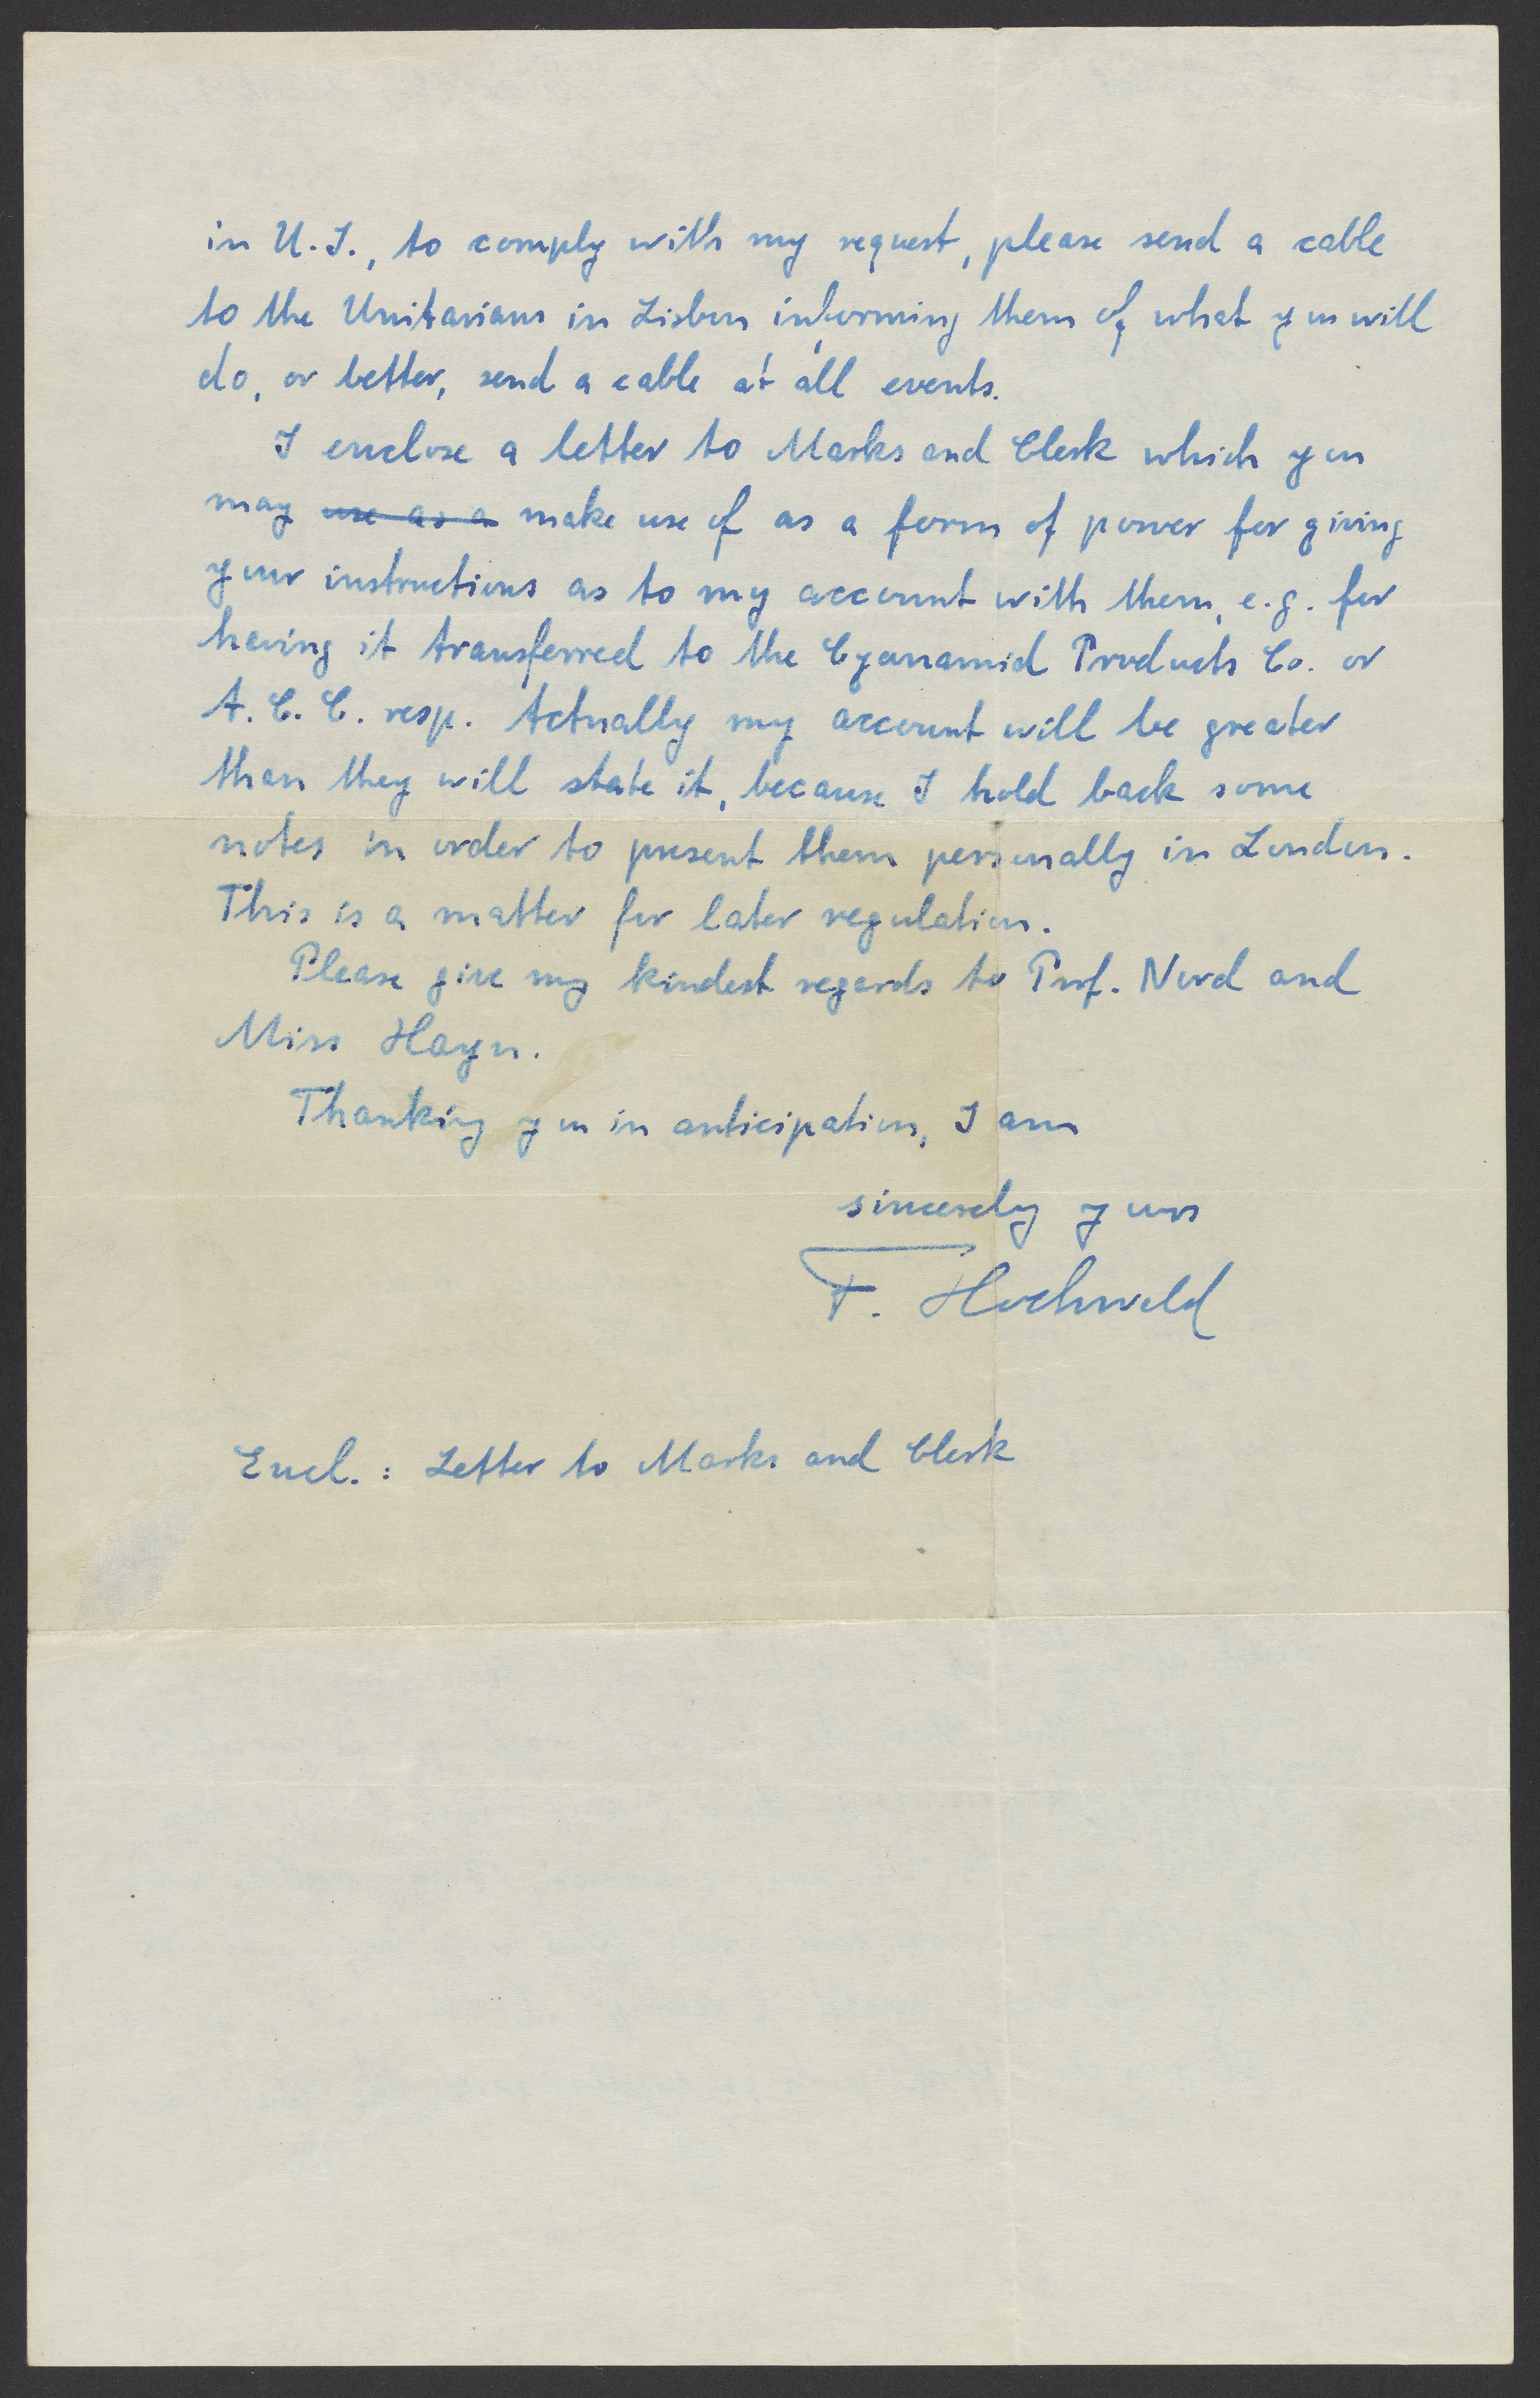 in U.S., to comply with my request, please send a cable
to the Unitarians in Lisbon informing them of what you will
do, or better, send a cable at all events.
I enclose a letter to Marks and Clerk which you
may use as a make use of as a form of power for giving
your instructions as to my account with them, e.g. for
having it transferred to the Cyanamid Products Co. or
A.C.C. resp. Actually my account will be greater
than they will state it, because I hold back some
notes in order to present them personally in London.
This is a matter for later regulation.
Please give my kindest regards to Prof. Nord and
Miss Hayn.
Thanking you in anticipation, I am
sincerely yours
F. Hochwald
Encl.: Letter to Marks and Clerk